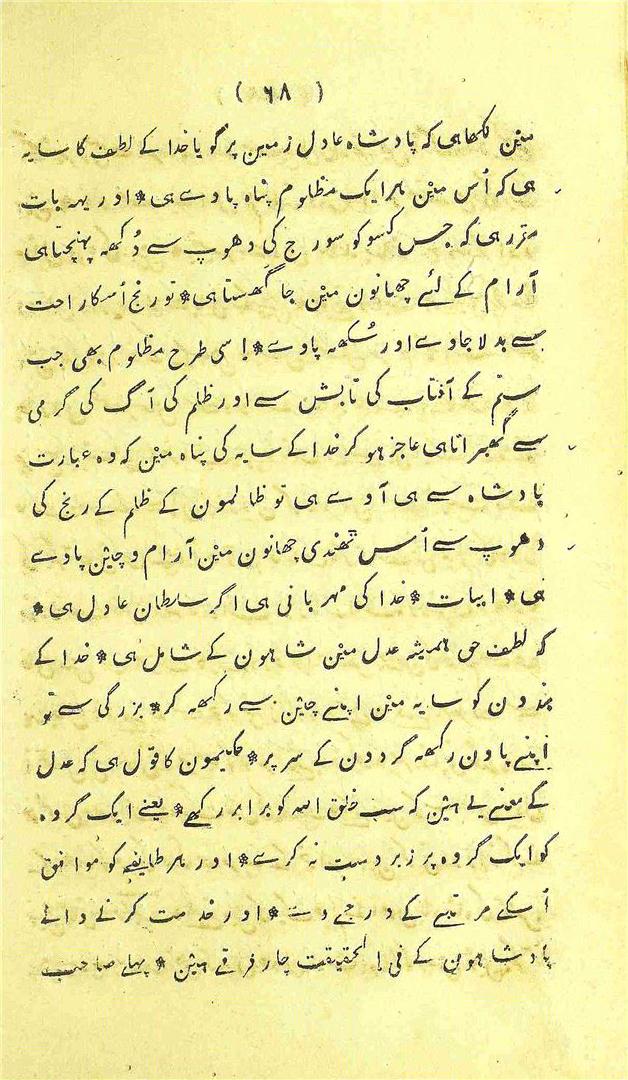 ( ٦٨ )
مین لکھا ہی کہ پادشاہ عادل زمین پر گویا خدا کے لطف کا سایہ
ہی کہ اُس مین ہر ایک مظلوم پناہ پاوے ہی * اور یہہ بات
مقرر ہی کہ جس کسو کو سورج کی دھوپ سے دُکھہ پہنچتا ہی
آرام کے لئے چھانون مین جا گھستا ہی * تو رنج اُسکا راحت
سے بدلا جاوے اور سُکھہ پاوے * اِسی طرح مظلوم بھی جب
ستم کے آفتاب کی تابش سے اور ظلم کی آگ کی گرمی
سے گھبراتا ہی عاجز ہو کر خدا کے سایہ کی پناہ مین کہ وہ عبارت
پادشاہ سے ہی آوے ہی تو ظالمون کے ظلم کے رنج کی
دھوپ سے اُس ٹھنڈی چھانون مین آرام و چین پاوے
ہی * ابیات * خدا کی مہربانی ہی اگر سلطان عادل ہی *
کہ لطف حق ہمیشہ عدل مین شاہون کے شامل ہی * خدا کے
بندون کو سایہ مین اپنے چین سے رکھہ کر * بزرگی سے تو
اپنے پاون رکھہ گردون کے سر پر * حکیمون کا قول ہی کہ عدل
کے معنے یے ہین کہ سب خلق اللہ کو برابر رکھے * یعنے ایک گروہ
کو ایک گروہ پر زبردست نہ کرے * اور ہر طایفے کو مُوافق
اُسکے مرتبے کے درجے دے * اور خدمت کرنے والے
پادشاہون کے فی الحقیقت چار فرقے ہین * پہلے صاحب